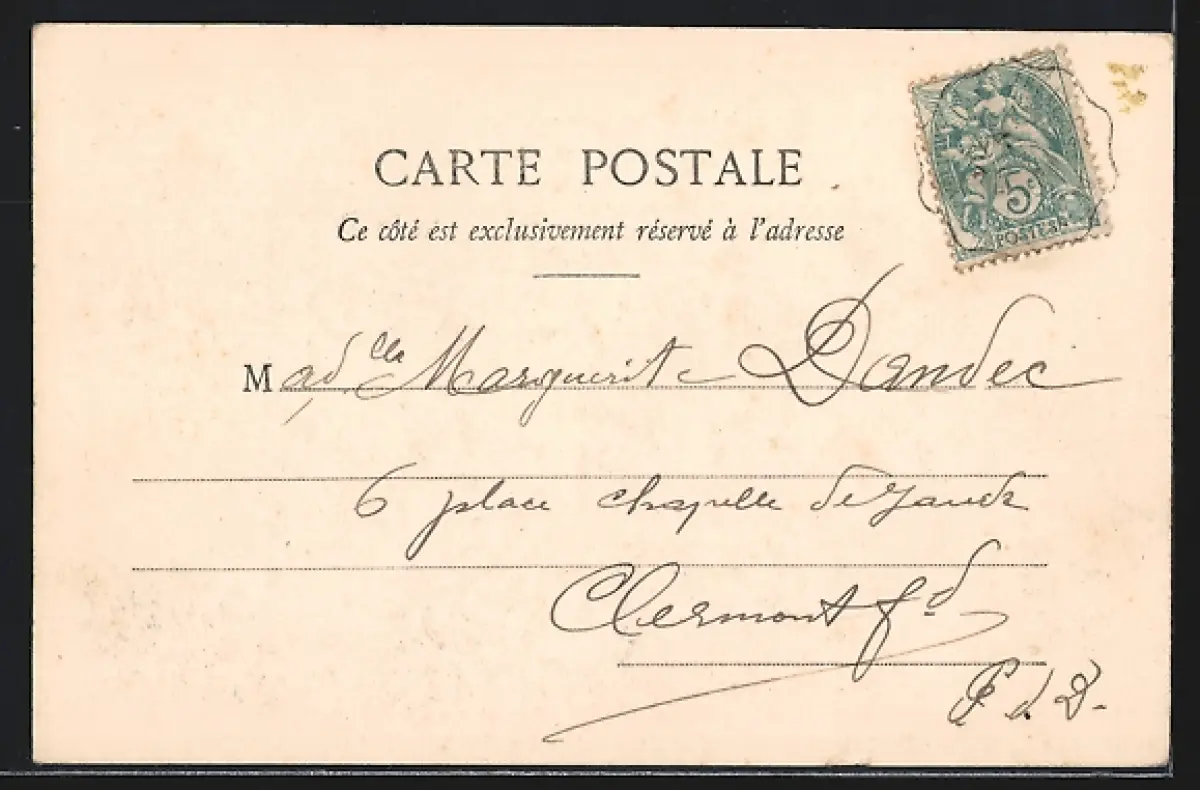 5c
POSTES
CARTE POSTALE
Ce côté est exclusivement réservé à l'adresse
Mad.elle Marguerite Dandec
6 place chapelle de Jaude
Clermont fd
P d D.